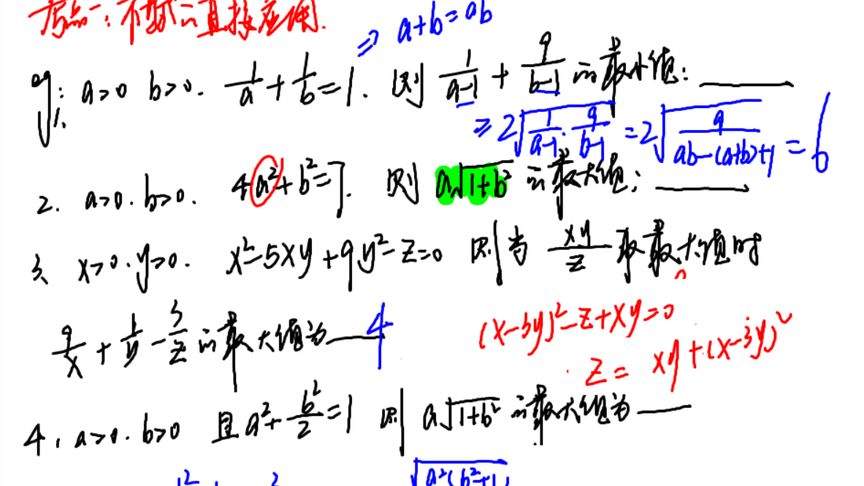 考点一：不等式的直接应用.
⇒ a+b=ab
例1. a>0 b>0. 1/a + 1/b = 1. 则 1/(a-1) + 9/(b-1) 的最小值: ____
≥2√(1/(a-1) · 9/(b-1)) = 2√(9/(ab-(a+b)+1)) = 6
2. a>0. b>0. 4a²+b²=7. 则 a√(1+b²) 的最大值: ____
3. x>0. y>0. x²-5xy+9y²-z=0 则当 xy/z 取最大值时
9/x + 1/y - 3/z 的最大值为 ____ 4
(x-3y)²-z+xy=0
z = xy+(x-3y)²
4. a>0. b>0 且 a²+b²/2=1 则 a√(1+b²) 的最大值为 ____
√(a²(b²+1)